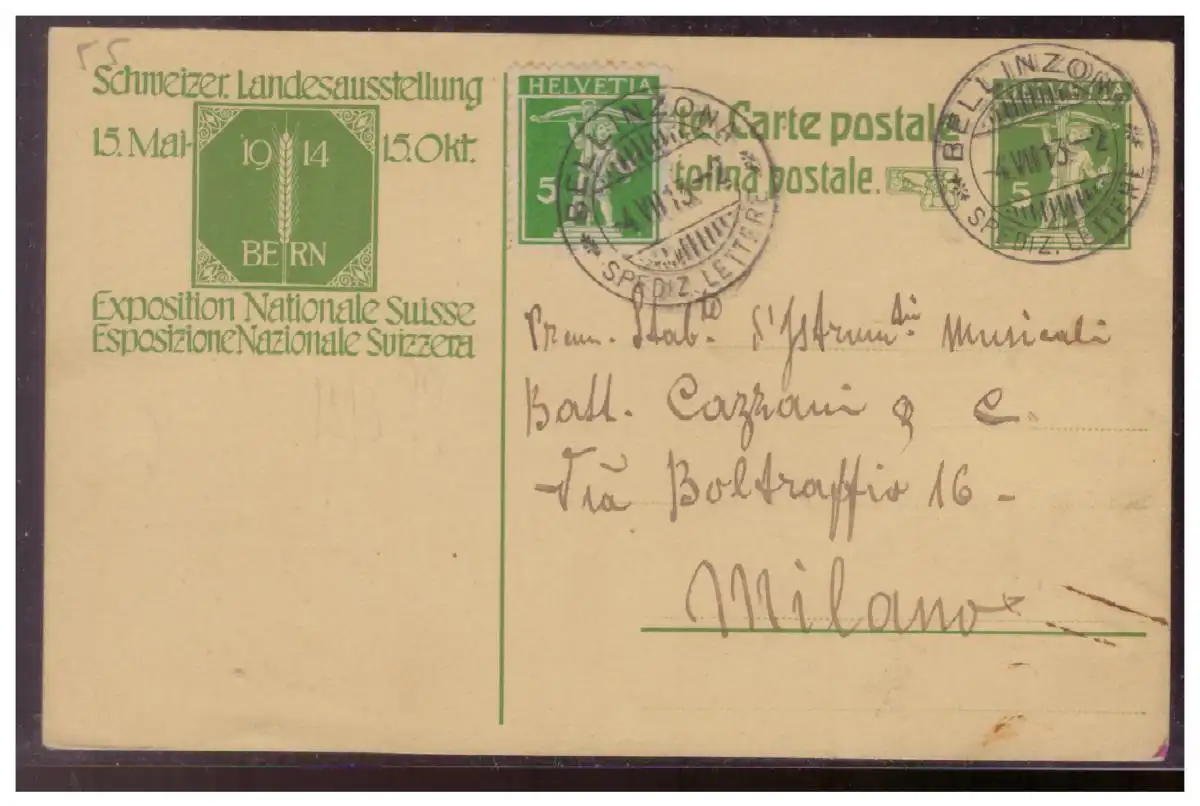 55
Schweizer. Landesausstellung
15. Mai- 15. Okt.
19 14
BERN
Exposition Nationale Suisse
Esposizione Nazionale Svizzera
HELVETIA
5
Carte postale
postale.
BELLINZONA
-4 VII 13 -2
SPEDIZ. LETTERE
5
BELLINZONA
-4 VII 13 -2
SPEDIZ. LETTERE
Prem. Stab.to d'Istrum.ti Musicali
Batt. Cazzani & C.
Via Boltraffio 16 -
Milano